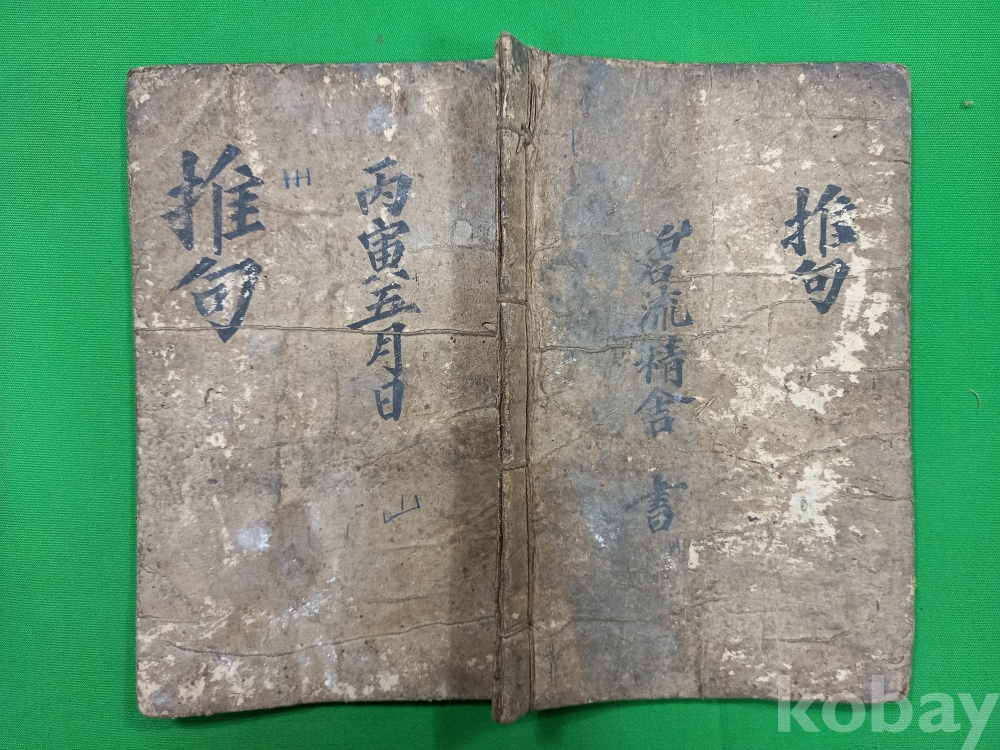 推句
丙寅五月日
山
推句
流精舍 書
kobay